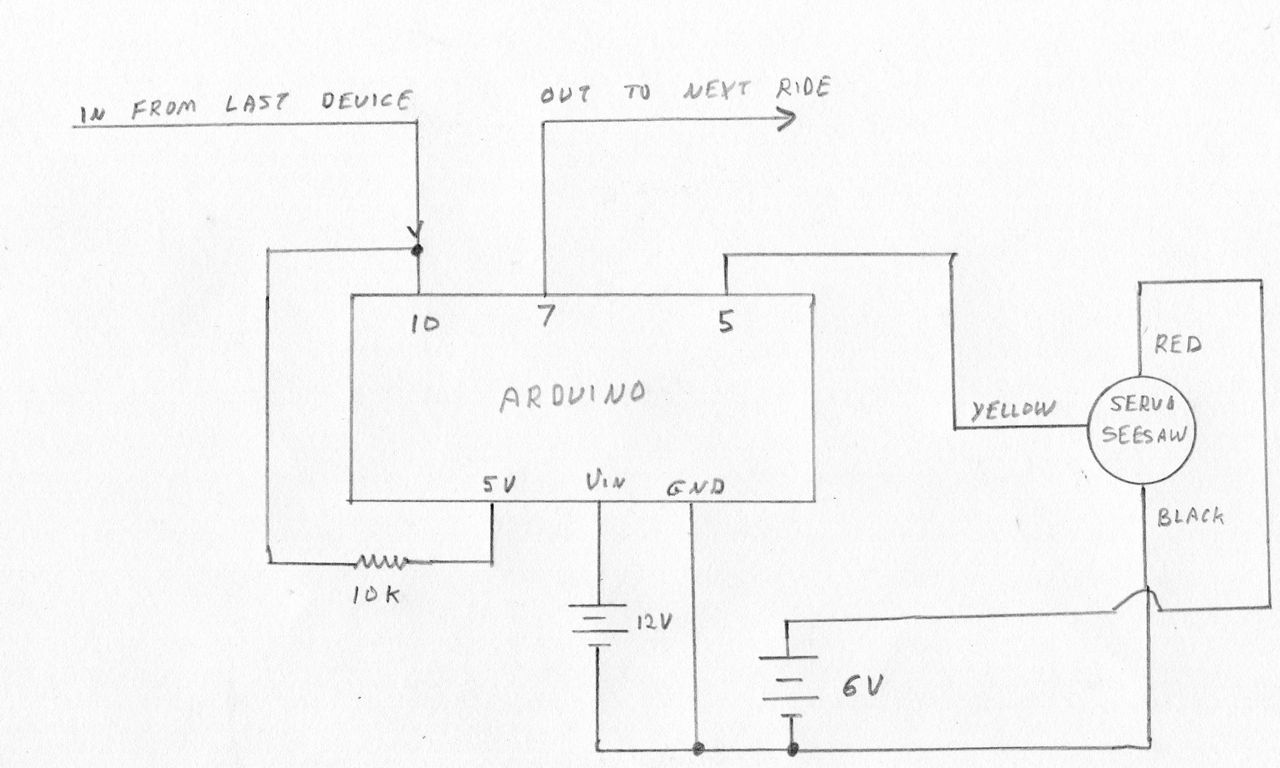 IN FROM LAST DEVICE
OUT TO NEXT RIDE
10
7
5
RED
ARDUINO
YELLOW
SERVO
SEESAW
5V
VIN
GND
BLACK
10K
12V
6V